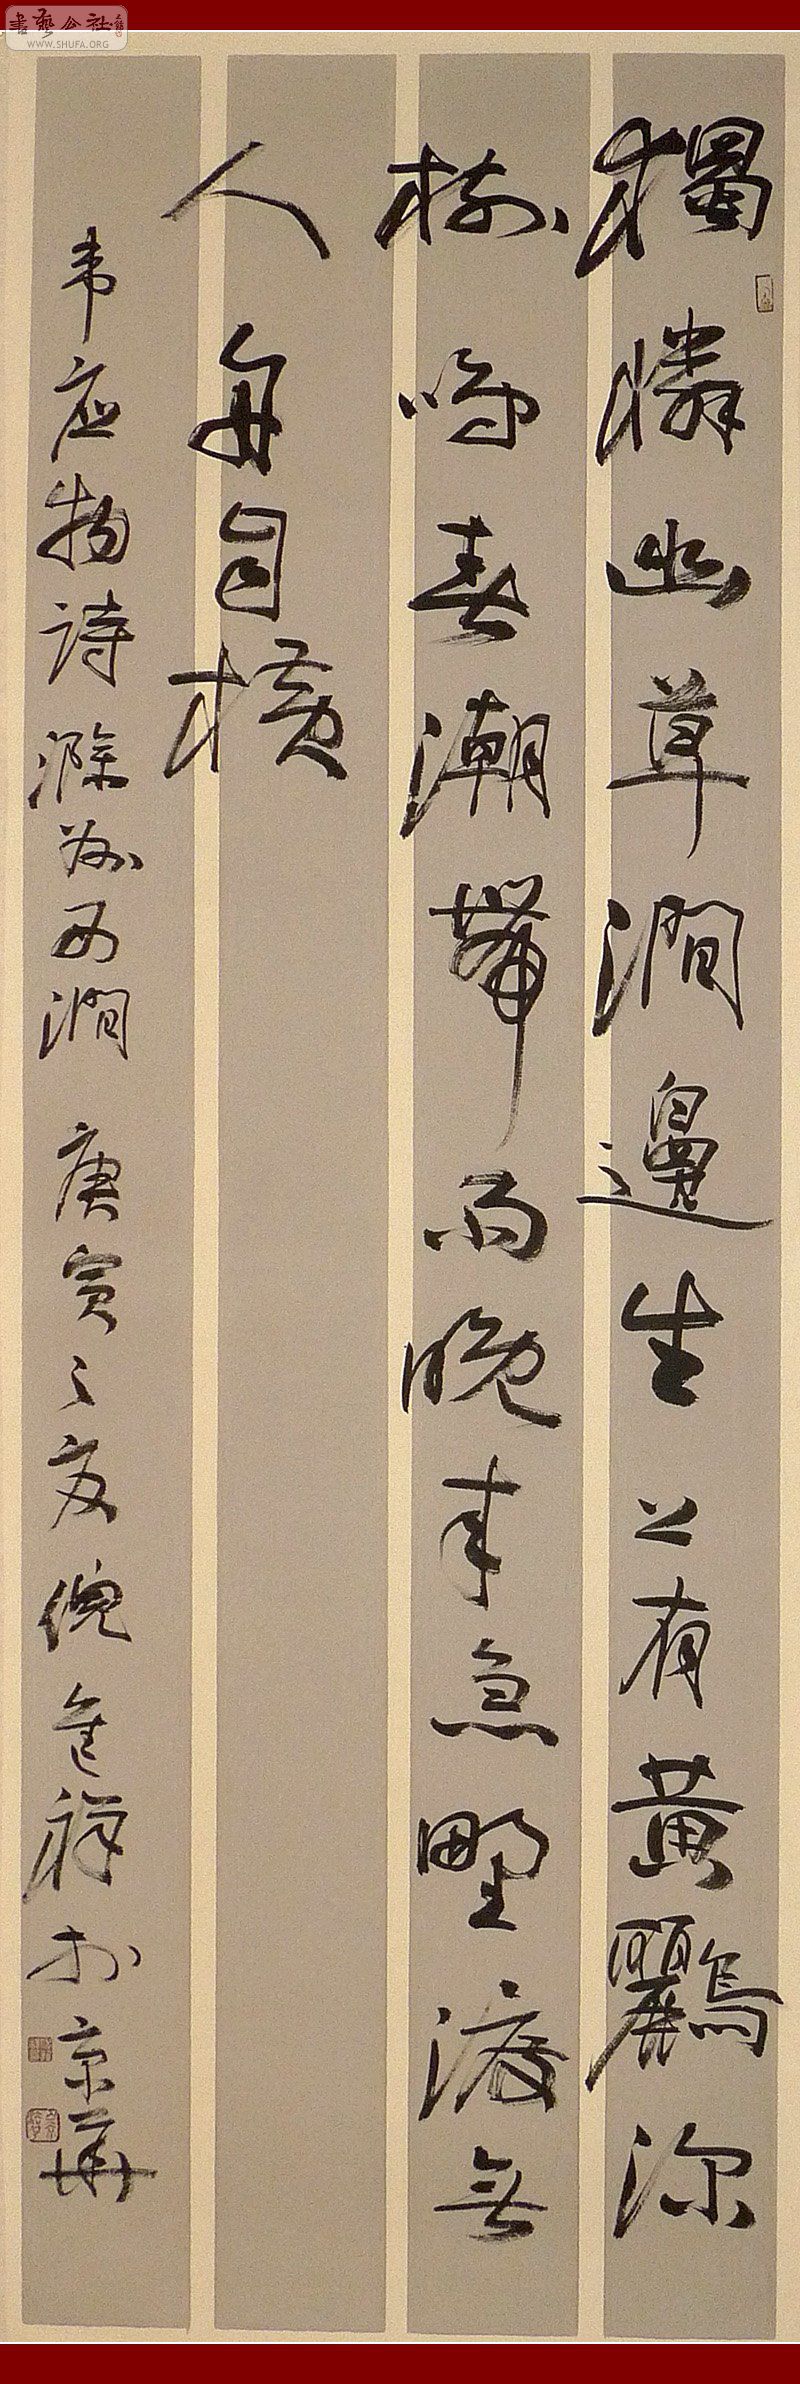 書藝公社
WWW.SHUFA.ORG
獨憐幽草澗邊生上有黃鸝深
樹鳴春潮帶雨晚來急野渡無
人舟自橫
韦应物诗滁州西澗 庚寅之夏倪進祥於京華